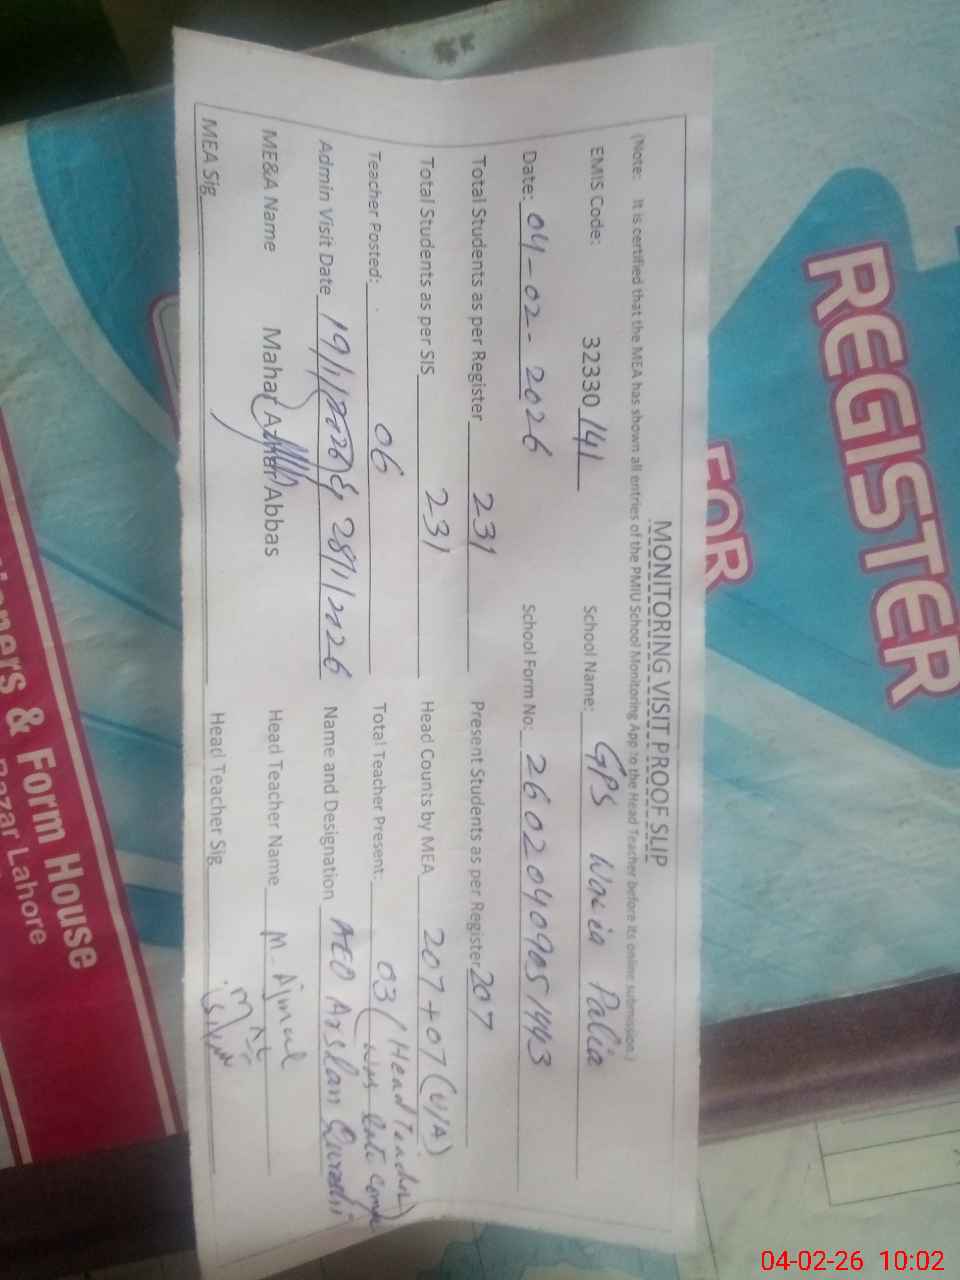 MONITORING VISIT PROOF SLIP
(Note: It is certified that the MEA has shown all entries of the PMIU School Monitoring App to the Head Teacher before its online submission.)
EMIS Code: 32330 141 School Name: GPS Wasia Palia
Date: 04-02-2026 School Form No: 26020409051443
Total Students as per Register 231 Present Students as per Register 207
Total Students as per SIS 231 Head Counts by MEA 207+07(U/A)
Teacher Posted: 06 Total Teacher Present: 03 (Head Teacher was late comer)
Admin Visit Date 19/1/2026 & 28/1/2026 Name and Designation AEO Arslan Qureshi
ME&A Name Mahar Azhar Abbas Head Teacher Name M. Ajmal
MEA Sig Head Teacher Sig
REGISTER
FOR
ners & Form House
Bazar Lahore
04-02-26 10:02